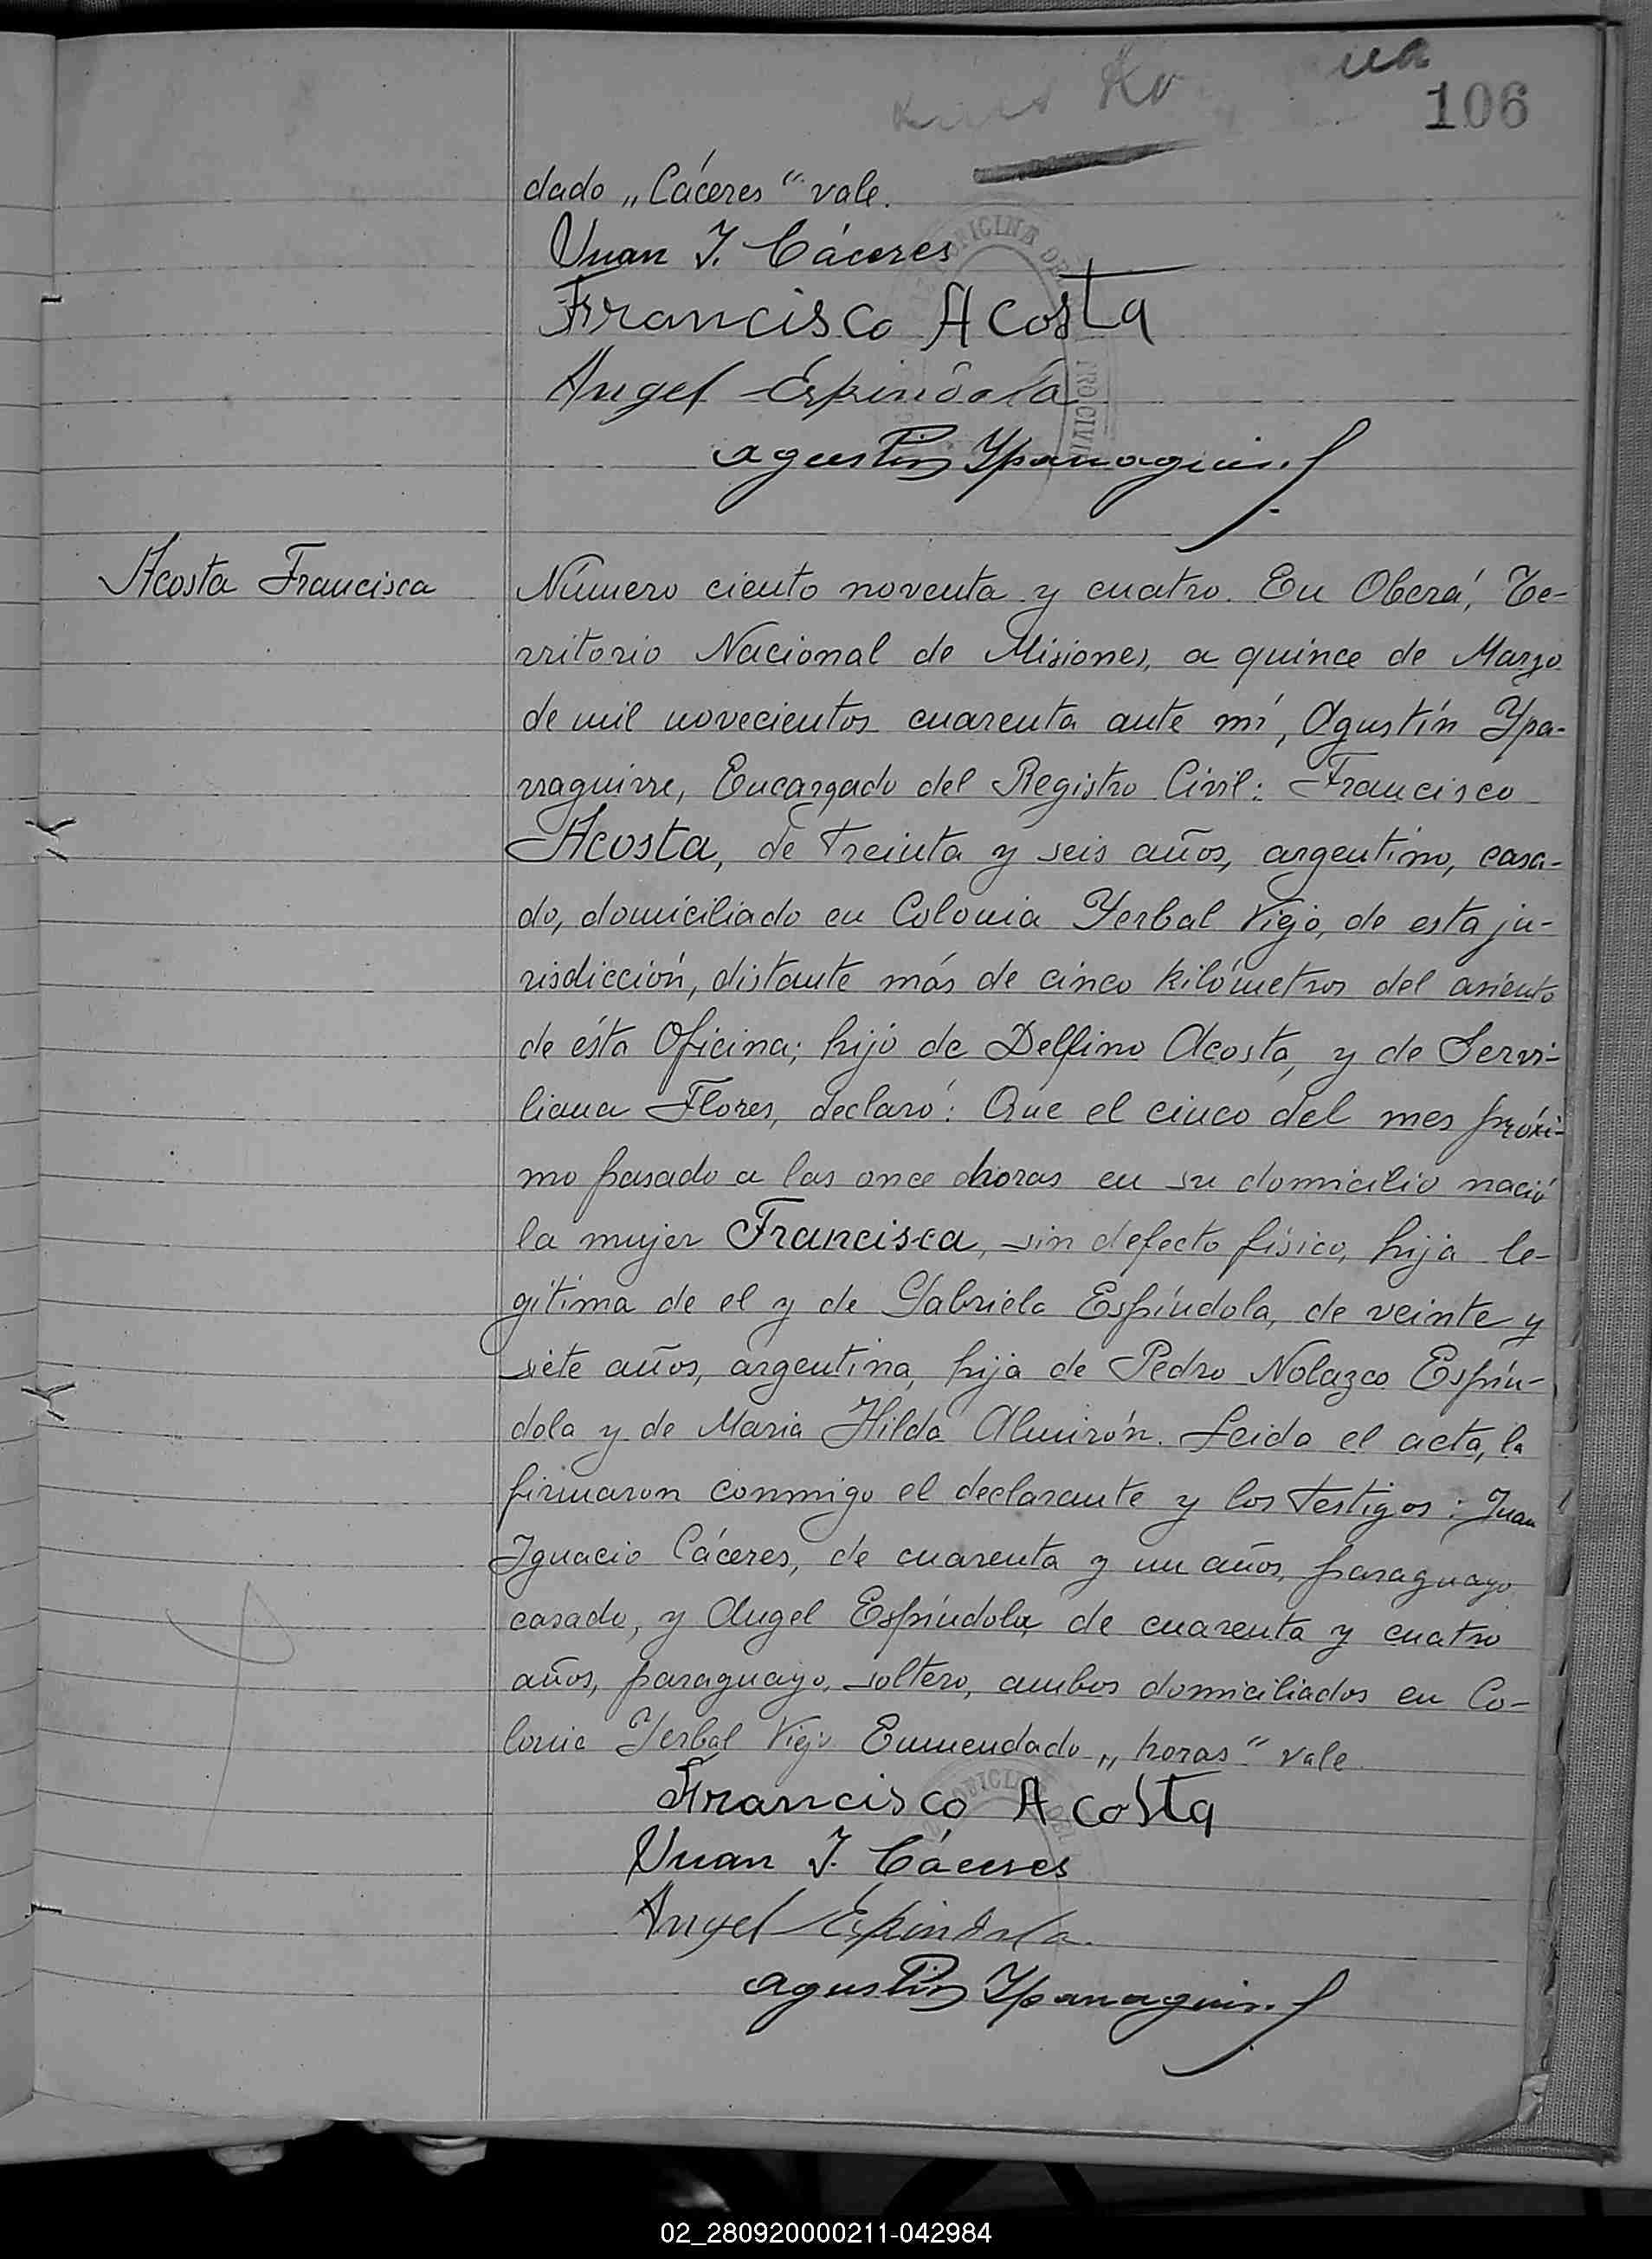 106
dado „Cáceres" vale.
Juan I. Cáceres
Francisco Acosta
Angel Espindola
Agustin Yparraguirre
Acosta Francisca
Número ciento noventa y cuatro. En Oberá, Te-
rritorio Nacional de Misiones, a quince de Marzo
de mil novecientos cuarenta ante mí, Agustín Ypa-
rraguirre, Encargado del Registro Civil: Francisco
Acosta, de treinta y seis años, argentino, casa-
do, domiciliado en Colonia Yerbal Viejo, de esta ju-
risdicción, distante más de cinco kilómetros del asiento
de ésta Oficina; hijo de Delfino Acosta, y de Servi-
liana Flores, declaró: Que el cinco del mes próxi-
mo pasado a las once horas en su domicilio nació
la mujer Francisca, sin defecto físico, hija le-
gítima de el y de Gabriela Espíndola, de veinte y
siete años, argentina, hija de Pedro Nolazco Espín-
dola y de Maria Hilda Almirón. Leida el acta, la
firmaron conmigo el declarante y los testigos: Juan
Ignacio Cáceres, de cuarenta y un años, paraguayo
casado, y Angel Espíndola, de cuarenta y cuatro
años, paraguayo, soltero, ambos domiciliados en Co-
lonia Yerbal Viejo Enmendado „horas" vale
Francisco Acosta
Juan I. Cáceres
Angel Espindola
Agustin Yparraguirre
02_280920000211-042984